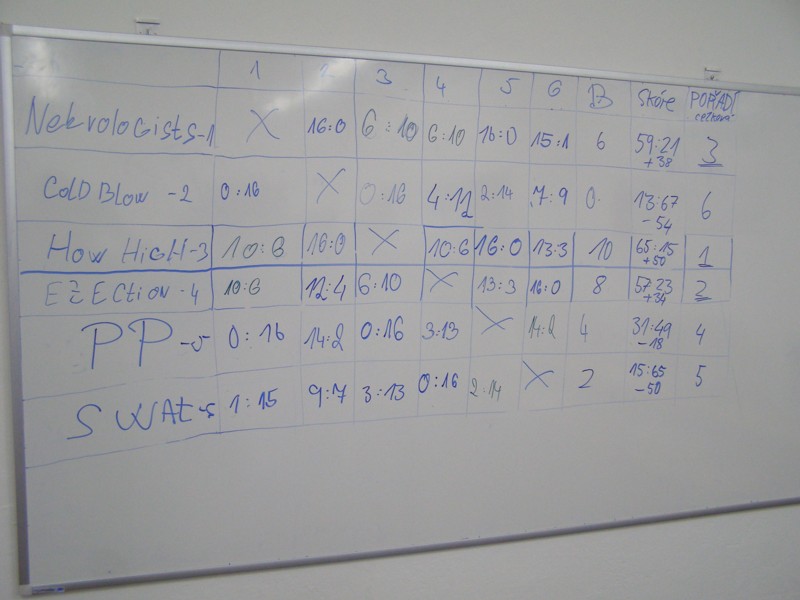 1 2 3 4 5 6 B Skóre POŘADÍ
celkové
Nekrologists-1 X 16:0 6:10 6:10 16:0 15:1 6 59:21 3
+38
COLD BLOW -2 0:16 X 0:16 4:12 2:14 7:9 0 13:67 6
-54
HOW HIGH-3 10:6 16:0 X 10:6 16:0 13:3 10 65:15 1
+50
EZECTION-4 10:6 12:4 6:10 X 13:3 16:0 8 57:23 2
+34
PP-5 0:16 14:2 0:16 3:13 X 14:2 4 31:49 4
-18
SWAT-6 1:15 9:7 3:13 0:16 2:14 X 2 15:65 5
-50